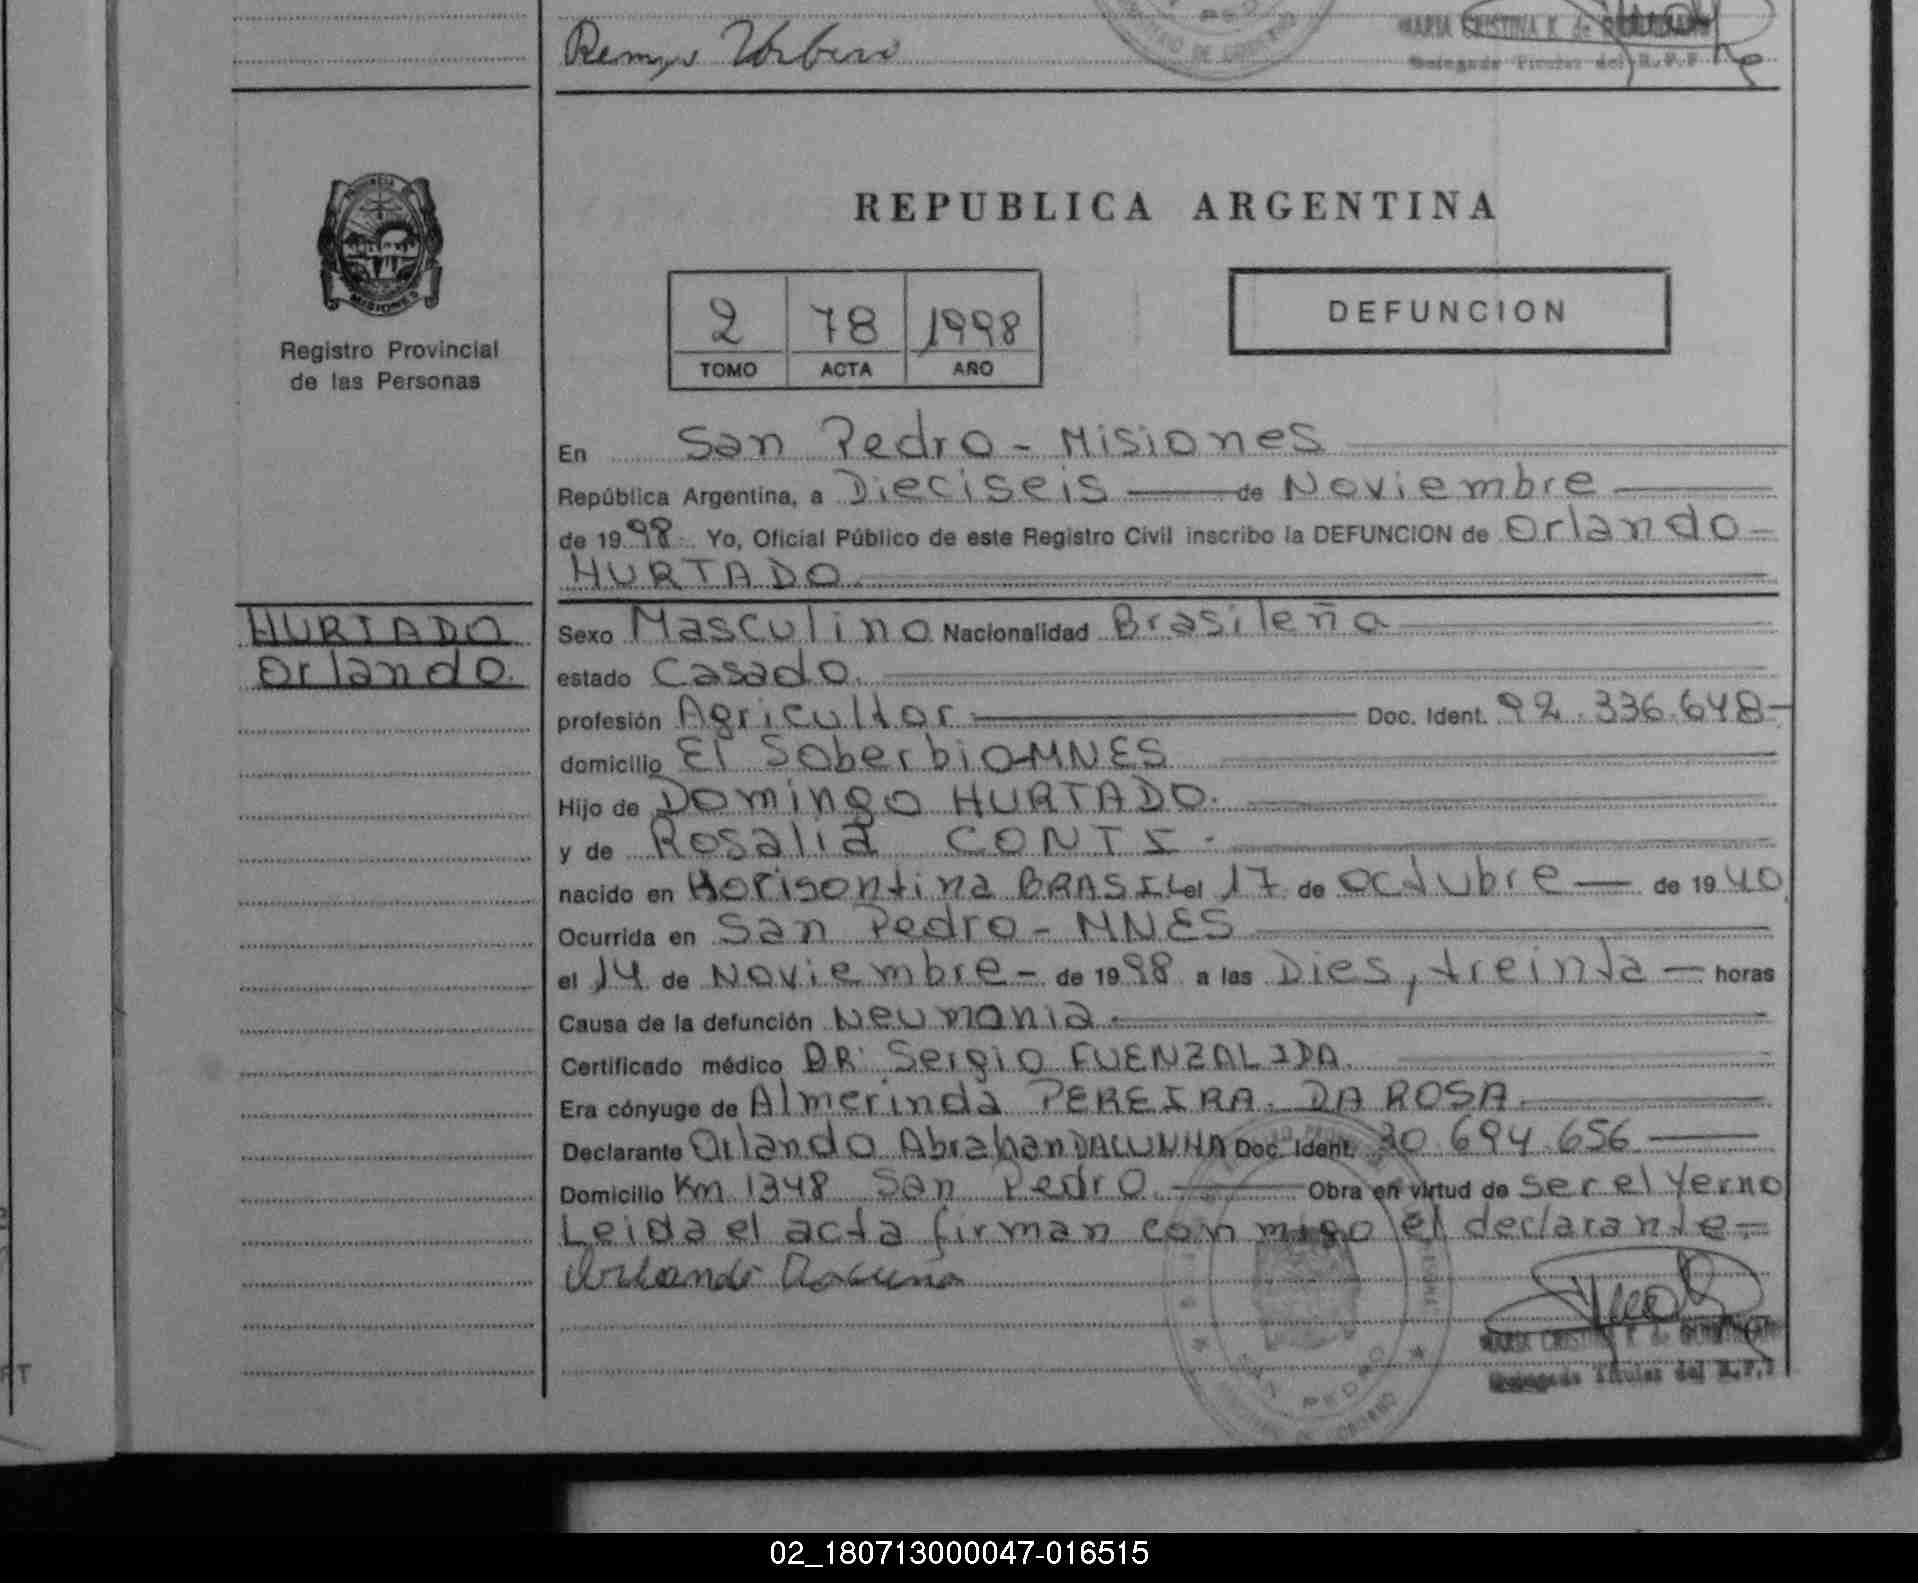 Remijio Urbeni
MARIA CRISTINA K. de
Delegada Titular del R.P.P
REPUBLICA ARGENTINA
2 78 1998
TOMO ACTA AÑO
DEFUNCION
MISIONES
Registro Provincial
de las Personas
En San Pedro - Misiones
República Argentina, a Dieciseis de Noviembre
de 1998 Yo, Oficial Público de este Registro Civil inscribo la DEFUNCION de Orlando
HURTADO
HURTADO
Orlando
Sexo Masculino Nacionalidad Brasileña
estado Casado.
profesión Agricultor Doc. Ident. 92.336.648-
domicilio El Soberbio-MNES
Hijo de Domingo HURTADO.
y de Rosalia CONTI.
nacido en Horisontina BRASIL el 17 de octubre de 1940
Ocurrida en San Pedro - MNES
el 14 de Noviembre - de 1998 a las Dies, treinta horas
Causa de la defunción Neumonia.
Certificado médico DR. Sergio FUENZALIDA.
Era cónyuge de Almerinda PEREIRA DA ROSA.
Declarante Orlando Abrahan DACUNHA Doc. Ident. 30.694.656
Domicilio Km 1348 San Pedro Obra en virtud de ser el Yerno
Leida el acta firman con migo el declarante
Orlando Dacuna
SAN PEDRO
MARIA CRISTINA K. de
Delegada Titular del R.P.P
02_180713000047-016515